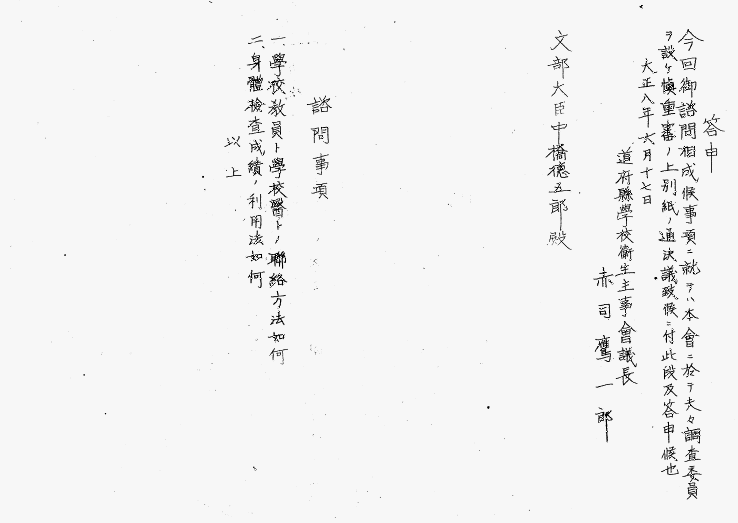 答申
今回御諮問相成候事項ニ就テハ本會ニ於テ夫々調査委員
ヲ設ケ愼重審ノ上別紙ノ通決議致候ニ付此段及答申候也
大正八年六月十七日
道府縣學校衞生主事會議長
赤司鷹一郎
文部大臣中橋德五郎殿
諮問事項
一、學校教員ト學校醫トノ聯絡方法如何
二、身體檢査成績ノ利用法如何
以上